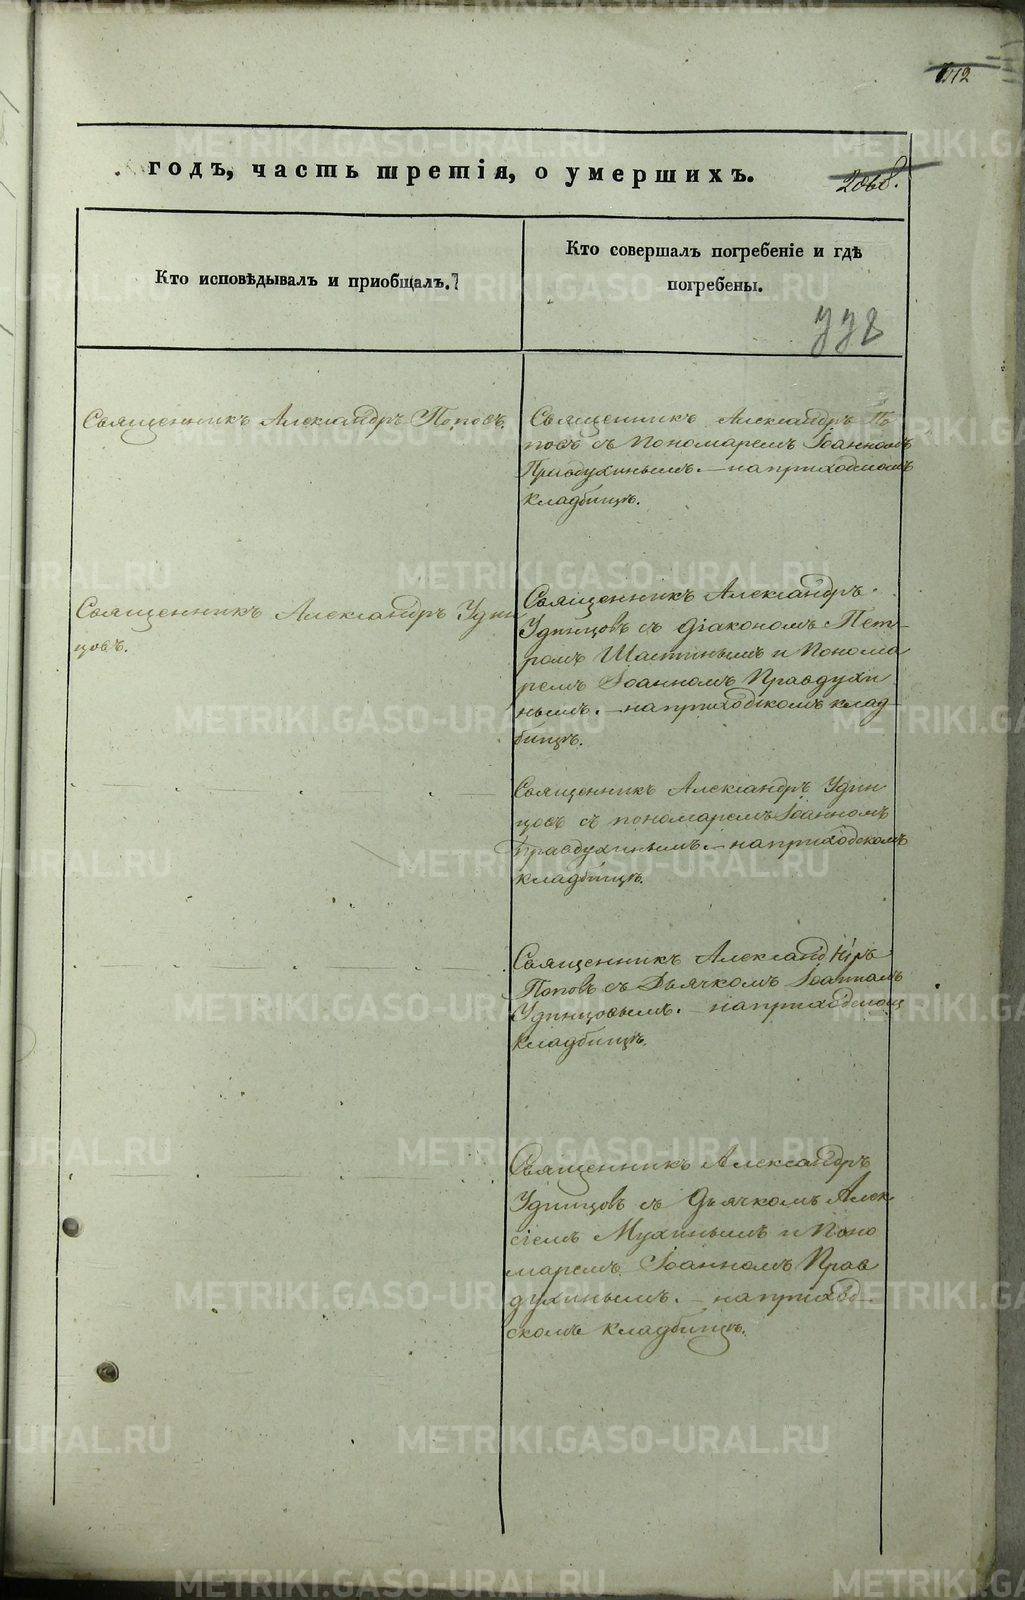 годъ, часть третія, о умершихъ.
2068.
Кто исповѣдывалъ и приобщалъ.
Кто совершалъ погребеніе и гдѣ
погребены.
Священникъ Александръ Поповъ.
Священникъ Александръ По
повъ съ Пономаремъ Іоанномъ
Правдухинымъ. — на приходскомъ
кладбищѣ.
Священникъ Александръ Удин
цовъ.
Священникъ Александръ
Удинцовъ съ Діакономъ Пет-
ромъ Шастинымъ и Понома
ремъ Іоанномъ Правдухи
нымъ. — на приходскомъ клад-
бищѣ.
Священникъ Александръ Удин
цовъ съ пономаремъ Іоанномъ
Правдухинымъ. — на приходскомъ
кладбищѣ.
Священникъ Александръ
Поповъ съ Дьячкомъ Іоанномъ
Удинцовымъ. — на приходскомъ
кладбищѣ.
Священникъ Александръ
Удинцовъ съ Дьячкомъ Алек
сіемъ Мухинымъ и Поно
маремъ Іоанномъ Прав
духинымъ. — на приход-
скомъ кладбищѣ.
METRIKI.GASO-URAL.RU